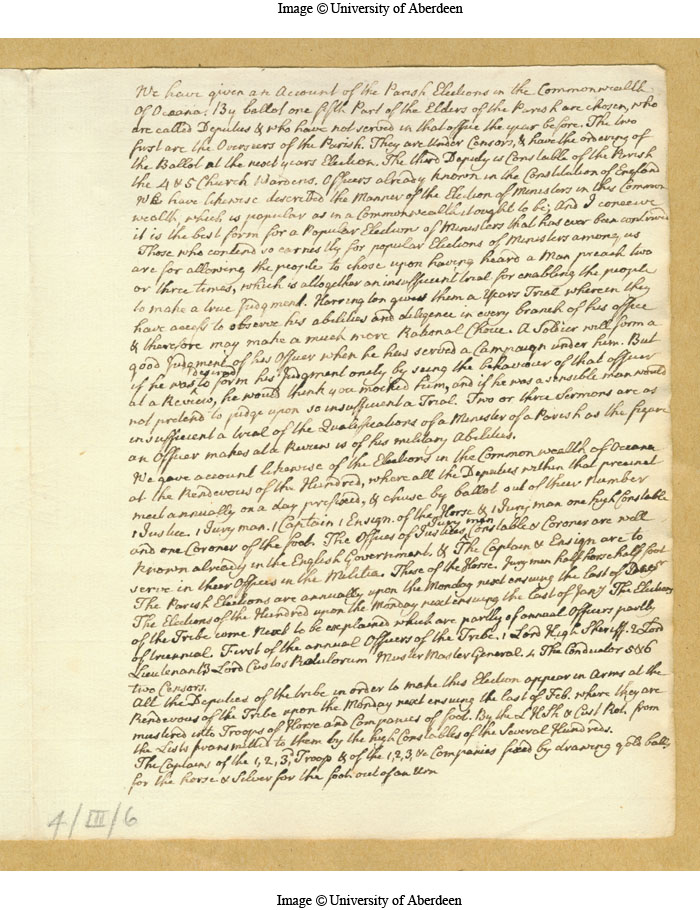 Image © University of Aberdeen
We have given an Account of the Parish Elections in the Commonwealth
Of Oceana. By ballot one fifth Part of the Elders of the Parish are chosen, who
are called Deputies & who have not served in that office the year before. The two
first are the Overseers of the Parish. They are Under Censors, & have the ordering of
the Ballot at the next years Election. The third Deputy is Constable of the Parish
the 4 & 5 Church Wardens. Officers already known in the Constitution of England
We have likewise described the Manner of the Election of Ministers in this Common
wealth which is popular as in a Commonwealth it ought to be, And I conceive
it is the best form for a Popular Election of Ministers that has ever been contrived
Those who contend so earnestly for popular Elections of Ministers among us
are for allowing the people to chose upon having heard a Man preach two
or three times, which is altogether an insufficient trial for enabling the people
to make a true Judgment. Harrington gives them a Years Trial wherein they
have access to observe his abilities and diligence in every branch of his office
& therefore may make a much more Rational Choice. A Soldier will form a
good Judgment of his Officer when he has served a Campaign under him. But
if he was desired to form his Judgment onely by seing the behaviour of that officer
at a Review, he would think you mocked him, and if he was a sensible man would
not pretend to judge upon so insufficient a Trial. Two or three Sermons are as
insufficient a trial of the Qualifications of a Minister of a Parish as the figure
an Officer makes at a Review is of his military Abilities.
We gave account likewise of the Elections in the Common wealth of Oceana
at the Rendevous of the Hundred, where all the Deputies within that precinct
meet annually on a day prefixed, & chuse by ballot out of their number
1 Justice. 1 Jury man. 1 Captain 1 Ensign. of the Horse & 1 Jury man one high Constable
and one Coroner of the foot. The Offices of Justice Jury man Constable & Coroner are well
known already in the English Government. & The Captain & Ensign are to
serve in their Offices in the Militia. These of the Horse. Jury men half horse half foot
The Parish Elections are annually upon the Monday next ensuing the last of Decr
The Elections of the Hundred upon the Monday next ensuing the last of Janʸ The Elections
of the Tribe come Next to be explained which are partly of annual Officers partly
of triennial. First of the annual Officers of the Tribe. 1 Lord High Sheriff. 2 Lord
Lieutenant 3 Lord Custos Rotulorum Muster Master General. 4 The Conductor 5 & 6
two Censors.
All the Deputies of the tribe in order to make this Election appear in Arms at the
Rendevous of the Tribe upon the Monday next ensuing the last of Feb. where they are
mustered into Troops of Horse and Companies of foot. By the L H Sh & Cust Rot. from
the Lists transmitted to them by the high Constables of the Several Hundreds.
The Captains of the 1, 2, 3d Troop & of the 1, 2, 3, &c Companies fixed by drawing gold balls
for the horse & Silver for the foot out of an Urn
4/III/6
Image © University of Aberdeen